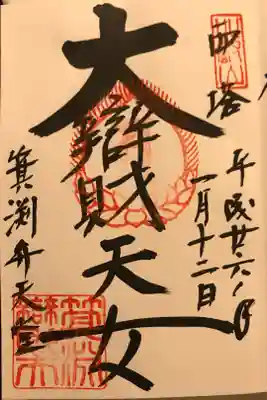 西塔
平成廿六年
一月十二日
大辯財天女
箕淵弁天堂